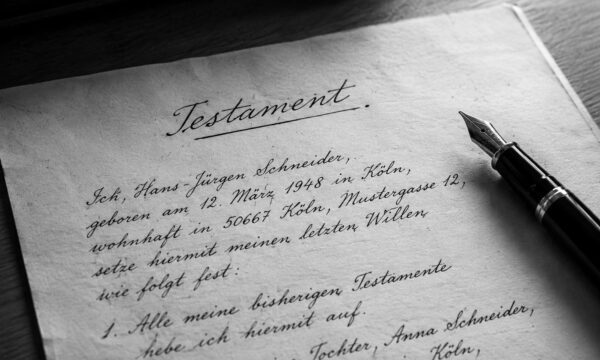 Testament.
Ich, Hans-Jürgen Schneider,
geboren am 12. März 1948 in Köln,
wohnhaft in 50667 Köln, Mustergasse 12,
setze hiermit meinen letzten Willen
wie folgt fest:
1. Alle meine bisherigen Testamente
hebe ich hiermit auf.
Tochter, Anna Schneider,
Köln,